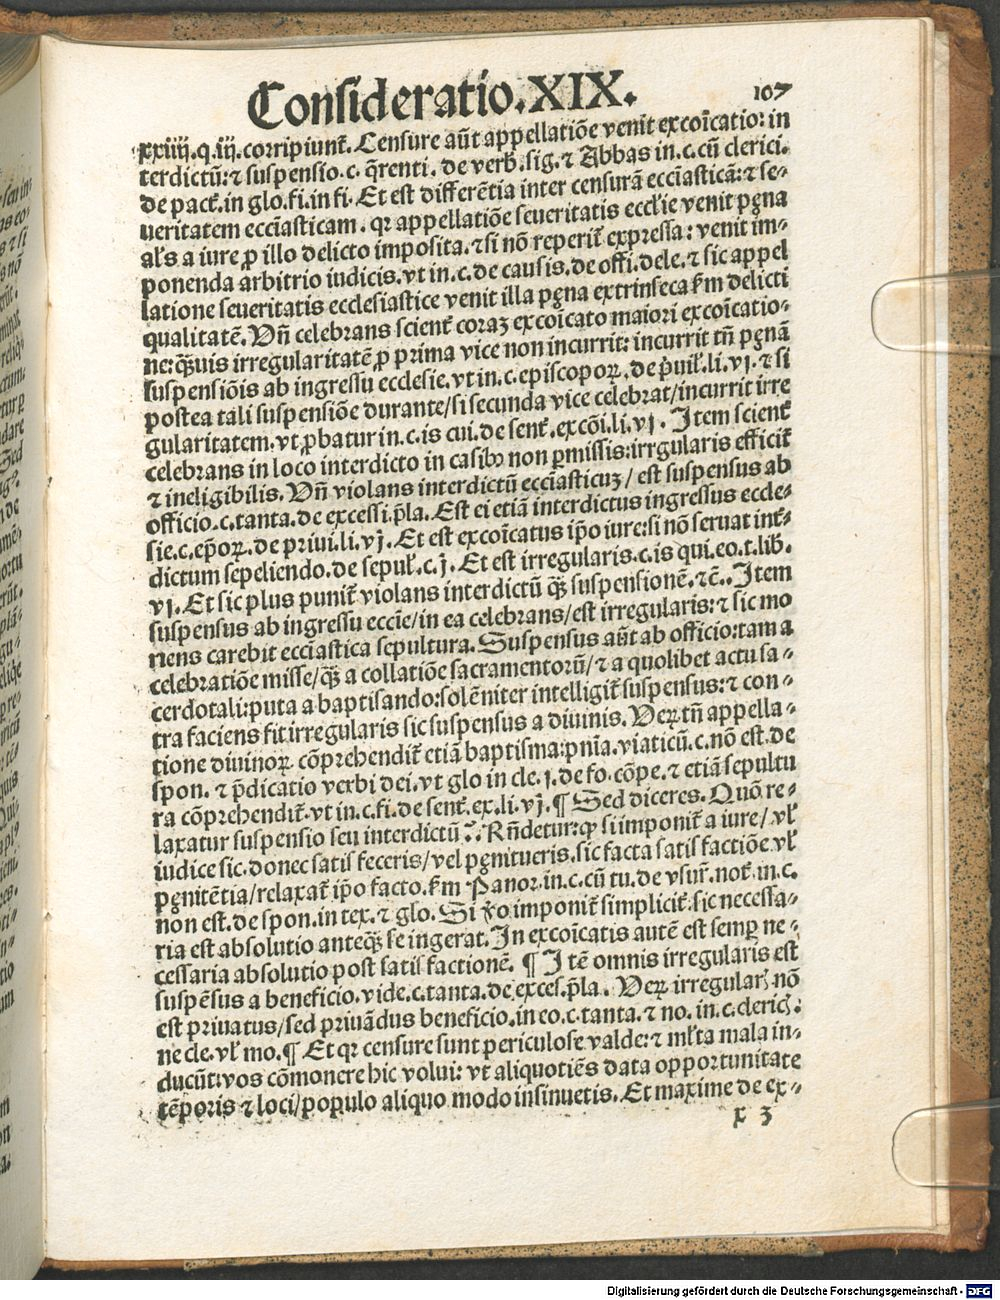 Consideratio.XIX.
107
xxiiij.q.iij.corripiunt̄. Censure aūt appellatiōe venit excoīcatio: in
terdictū: ⁊ suspensio.c. q̄renti. de verb̄.sig.⁊ Abbas in.c.cū clerici.
de pact̄.in glo.fi.in fi. Et est differētia inter censurā ecc̄iasticā: ⁊ se⸗
ueritatem ecc̄iasticam. qꝛ appellatiōe seueritatis eccl̄ie venit pęna
al̄s a iure ꝓ illo delicto imposita. ⁊ si nō reperit̄ expressa: venit im⸗
ponenda arbitrio iudicis. vt in.c.de causis.de offi.dele. ⁊ sic appel
latione seueritatis ecclesiastice venit illa pęna extrinseca ẜm delicti
qualitatē. Vn̄ celebrans scient̄ coraꝫ excoīcato maiori excoīcatio⸗
ne: qꝙ̄uis irregularitatē ꝓ prima vice non incurrit: incurrit tn̄ pęnā
suspensiōis ab ingressu ecclesie. vt in.c.episcopoꝝ. de p̄uil̄.li.vj. ⁊ si
postea tali suspensiōe durante/ si secunda vice celebrat/ incurrit irre
gularitatem. vt ꝓbatur in.c.is cui.de sent̄.excōi.li.vj. Item scient̄
celebrans in loco interdicto in casibꝰ non ꝑmissis: irrgularis efficit̄
⁊ ineligibilis. Vn̄ violans interdictū ecc̄iasticuꝫ/ est suspensus ab
officio.c.tanta.de excessi.p̄la. Est ei etiā interdictus ingressus eccle⸗
sie.c.ep̄oꝝ.de priui.li.vj. Et est excoīcatus ip̄o iure: si nō seruat int̄⸗
dictum sepeliendo.de sepul̄.c.j. Et est irregularis.c.is qui.eo.t.lib.
vj. Et sic plus punit̄ violans interdictū qꝙ̄ suspensionē.⁊c̄. Item
suspensus ab ingressu ecc̄ie/ in ea celebrans/ est irregularis: ⁊ sic mo
riens carebit ecc̄iastica sepultura. Suspensus aūt ab officio: tam a
celebratiōe misse/ qꝙ̄ a collatiōe sacramentorū/ ⁊ a quolibet actu sa⸗
cerdotali: puta a baptisando: solēniter intelligit̄ suspensus: ⁊ con⸗
tra faciens fit irregularis sic suspensus a diuinis. Veꝝ tn̄ appella⸗
tione diuinoꝝ cōprehendit̄ etiā baptisma: pn̄ia. viaticū.c.nō est.de
spon. ⁊ p̄dicatio verbi dei. vt glo in cle.j.de fo.cōpe. ⁊ etiā sepultu
ra cōprehendit̄. vt in.c.fi.de sent̄.ex.li.vj. ¶ Sed diceres. Quō re⸗
laxatur suspensio seu interdictū? Rn̄detur: ꝙ si imponit̄ a iure/ vl̄
iudice sic. donec satis feceris/ vel pęnitueris. sic facta satis factiōe vl̄
pęnitētia/ relaxat̄ ip̄o facto. ẜm Panor.in.c.cū tu.de vsur̄. not̄.in.c.
non est.de spon.in tex. ⁊ glo. Si v̄o imponit̄ simplicit̄. sic necessa⸗
ria est absolutio anteqꝙ̄ se ingerat. In excoīcatis autē est semꝑ ne⸗
cessaria absolutio post satis factionē. ¶ Itē omnis irregularis est
suspēsus a beneficio. vide.c.tanta.de exces.p̄la. Veꝝ irregularꝭ nō
est priuatus/ sed priuādus beneficio. in eo.c.tanta. ⁊ no. in.c.clericꝭ.
ne cle. vl̄ mo. ¶ Et qꝛ censure sunt periculose valde: ⁊ ml̄ta mala in⸗
ducūt: vos cōmonere hic volui: vt aliquotiēs data opportunitate
tēporis ⁊ loci/ populo aliquo modo insinuetis. Et maxime de ex⸗
x 3
Digitalisierung gefördert durch die Deutsche Forschungsgemeinschaft - DFG